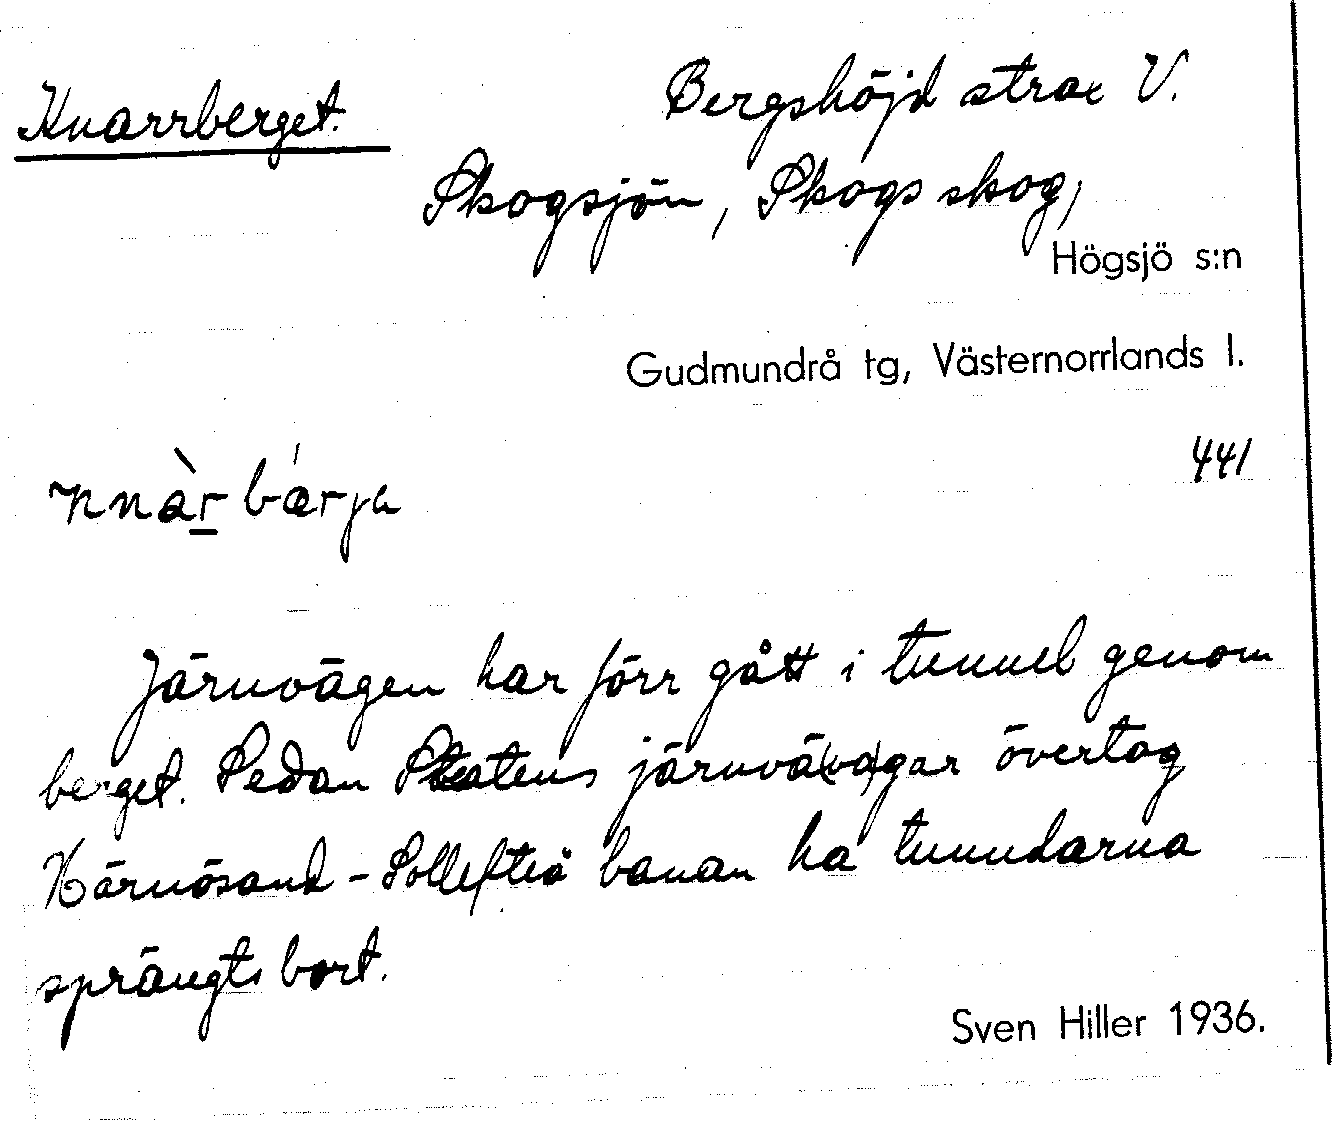 Knarrberget.
Bergshöjd strax V.
Skogsjön, Skogs skog,
Högsjö s:n
Gudmundrå tg, Västernorrlands l.
441
Järnvägen har förr gått i tunnel genom
berget. Sedan Statens järnvä(vä)gar övertog
Härnösand-Sollefteå banan ha tunnlarna
sprängts bort.
Sven Hiller 1936.